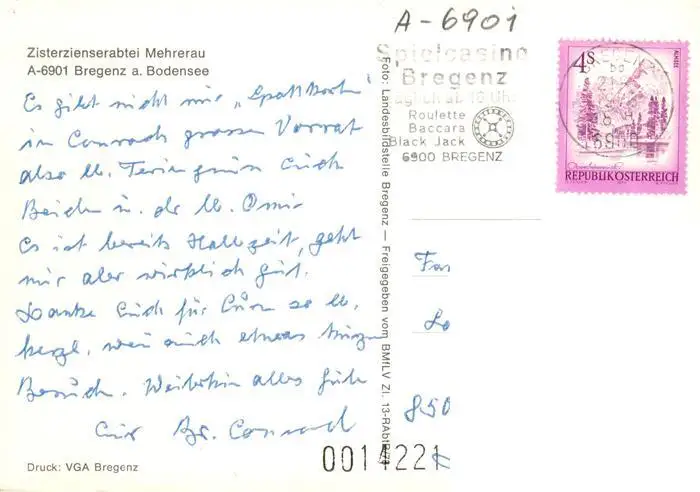 A-6901
Zisterzienserabtei Mehrerau
A-6901 Bregenz a. Bodensee
Es gibt nicht nur „Spaßkarten“
in Conrads grossen Vorrat
also lb. Feriengrüsse Euch
Beiden u. dr lb. Omi
Es ist bereits Halbzeit, geht
mir aber wirklich gut.
Danke Euch für Eüren so lb.
herzl. wenn auch etwas kurzen
Besuch. Weiterhin alles Gute
Eür Br. Conrad
Druck: VGA Bregenz
Foto: Landesbildstelle Bregenz — Freigegeben vom BMfLV Zl. 13-RAbtB/73
Spielcasino
Bregenz
täglich ab 16 Uhr
Roulette
Baccara
Black Jack
6900 BREGENZ
4S
ALMSEE
REPUBLIK ÖSTERREICH
BREGENZ
Fas
Lo
850
0014221